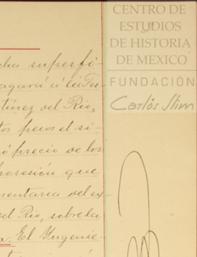 CENTRO DE
ESTUDIOS
DE HISTORIA
DE MEXICO
FUNDACIÓN
Carlos Slim
superfi
agará á
tínez del Rio,
tos pesos el si
precio de los
presión que
mentaria del ex
del Rio, sobre la
El Ingenie